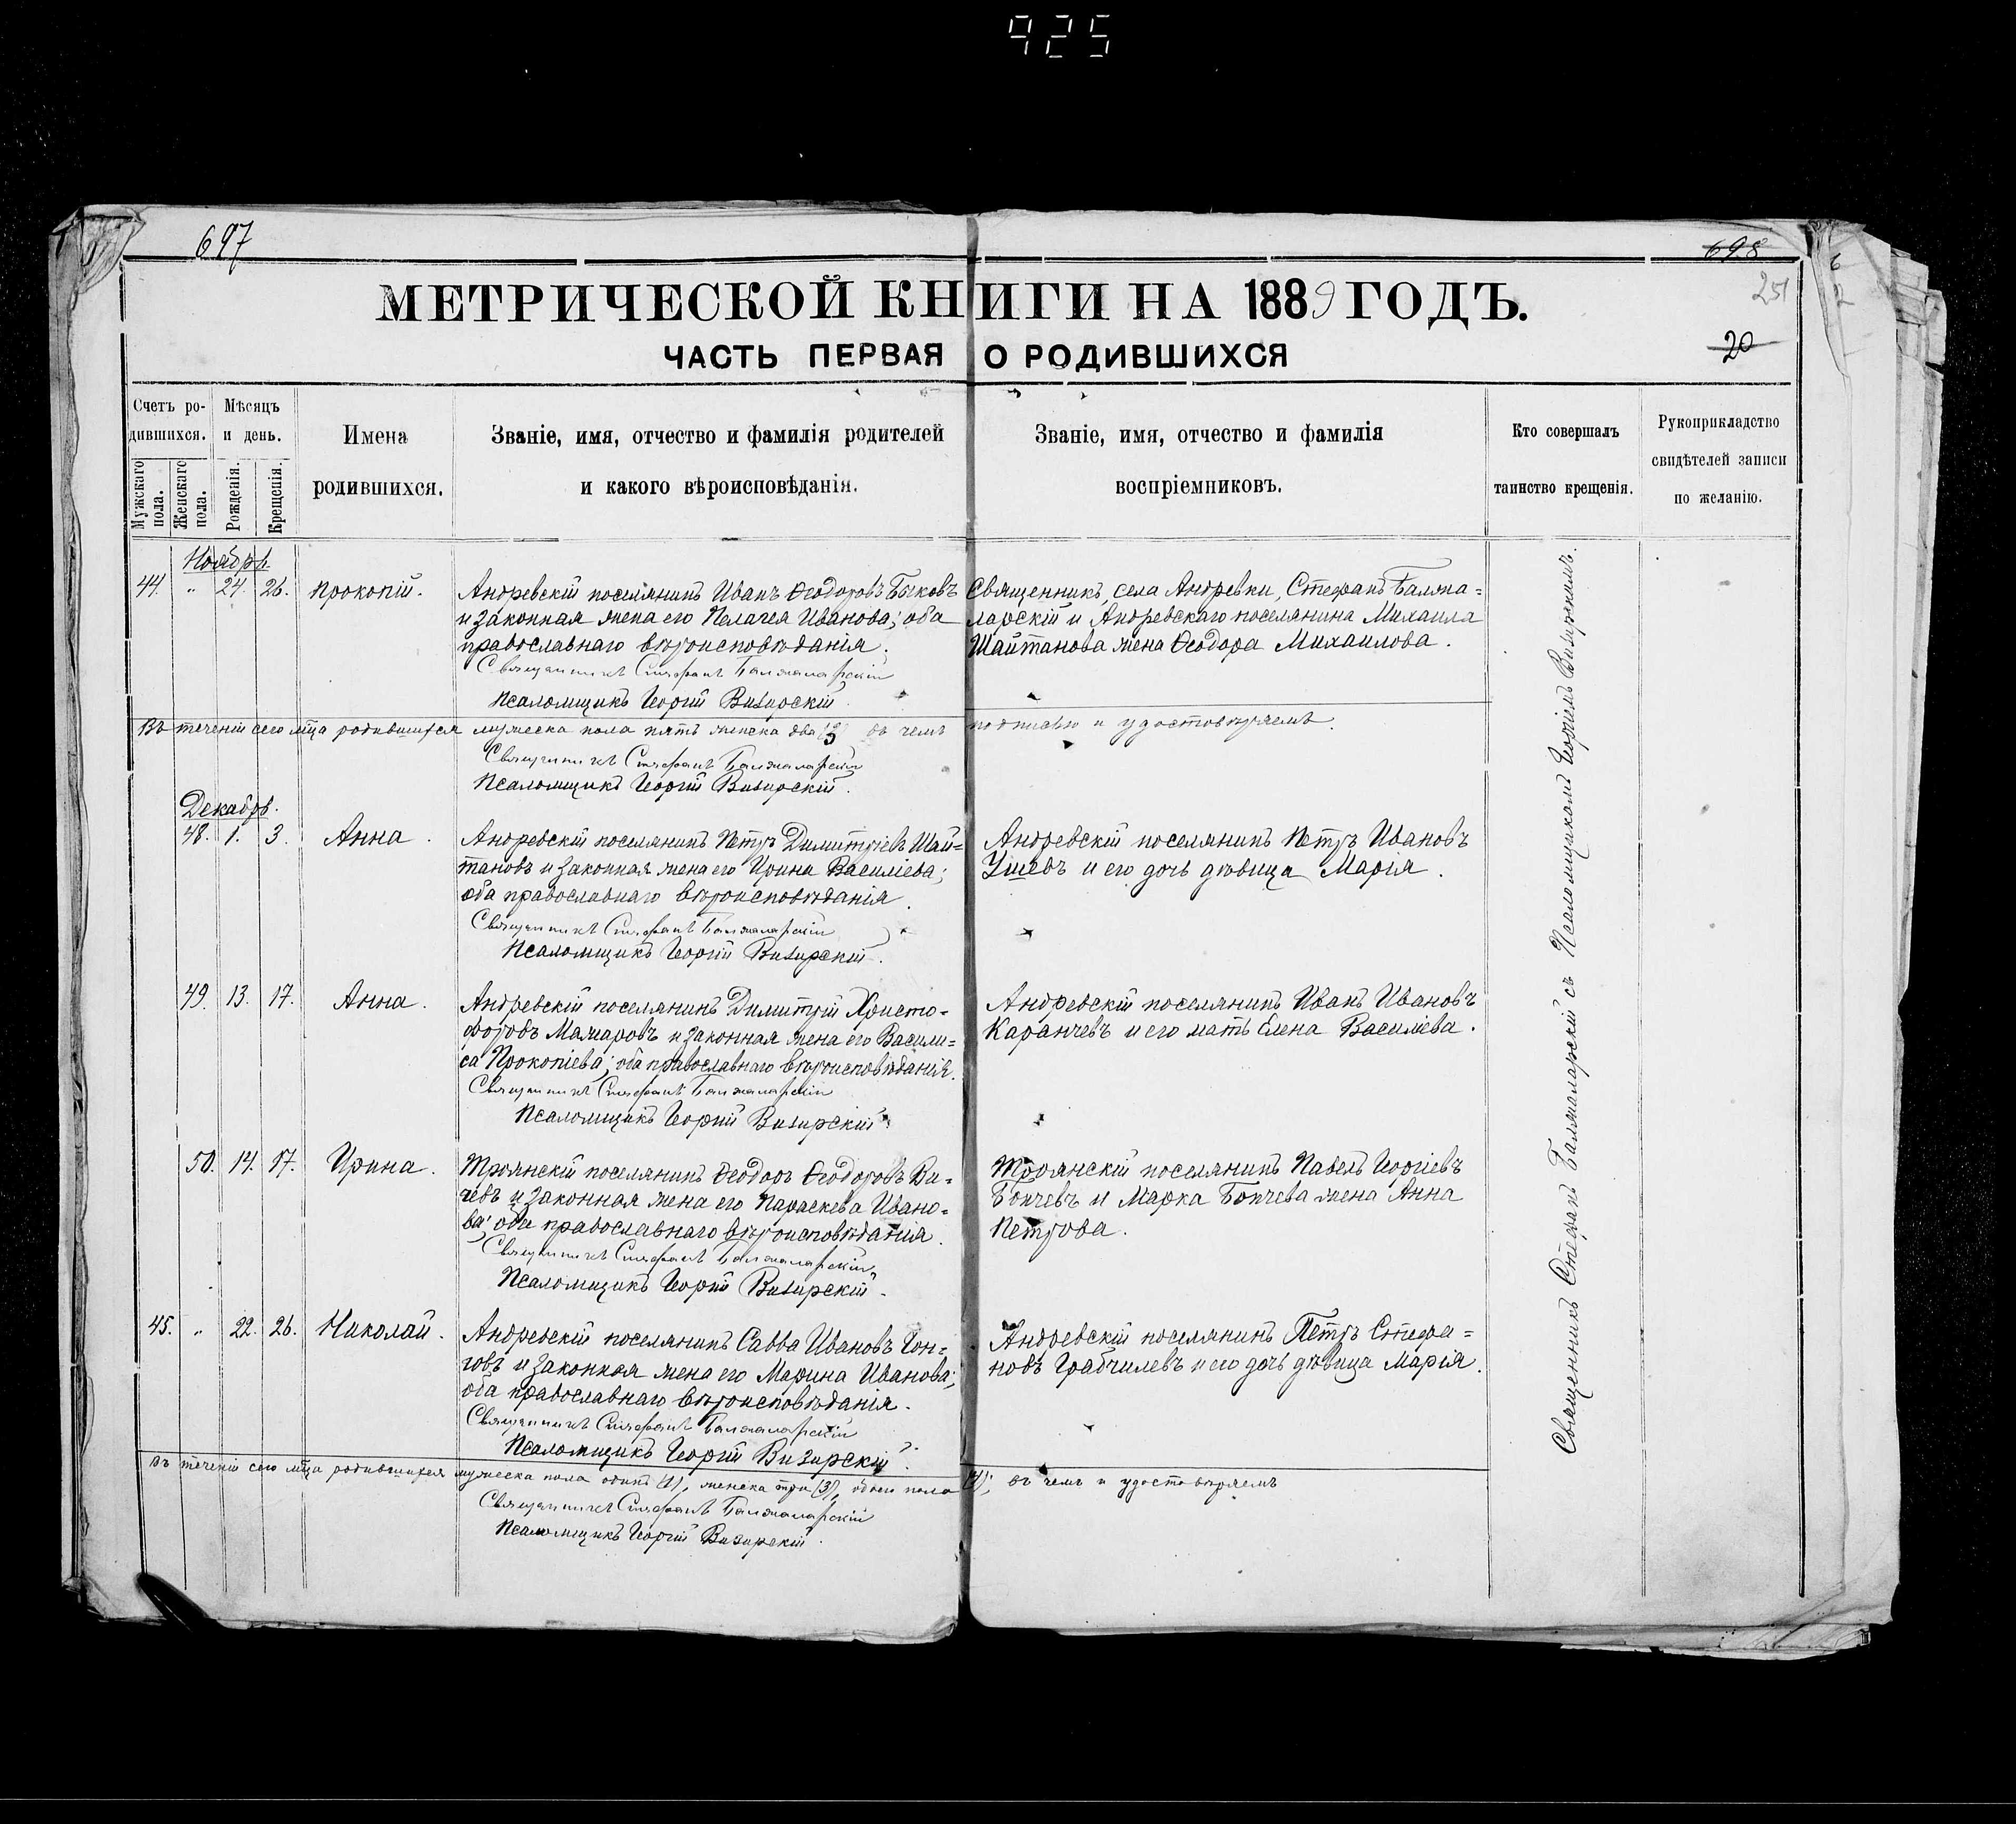 925
697
698
251
МЕТРИЧЕСКОЙ КНИГИ НА 1889 ГОДЪ.
20
ЧАСТЬ ПЕРВАЯ О РОДИВШИХСЯ
Счетъ родившихся.
Мужскаго пола.
Женскаго пола.
Мѣсяцъ и день.
Рожденія.
Крещенія.
Имена родившихся.
Званіе, имя, отчество и фамилія родителей
и какого вѣроисповѣданія.
Званіе, имя, отчество и фамилія
воспріемниковъ.
Кто совершалъ
таинство крещенія.
Рукоприкладство
свидѣтелей записи
по желанію.
Ноябрь
44. " 24. 26. Прокопій.
Андревскій поселянинъ Иванъ Ѳеодоровъ Быковъ
и законная жена его Пелагея Иванова; оба
православнаго вѣроисповѣданія.
Священникъ Стефанъ Балжаларскій
Псаломщикъ Георгій Визирскій.
Священникъ села Андревки, Стефанъ Балжа=
ларскій и Андревскаго поселянина Михаила
Шайтанова жена Ѳеодора Михаилова.
Въ теченіи сего мѣца родившихся мужеска пола пять женска два въ чемъ подписью и удостовѣряемъ.
Священникъ Стефанъ Балжаларскій
Псаломщикъ Георгій Визирскій.
Декабрь.
48. 1. 3. Анна.
Андревскій поселянинъ Петръ Димитріевъ Шай=
тановъ и законная жена его Ирина Василіева;
оба православнаго вѣроисповѣданія.
Священникъ Стефанъ Балжаларскій
Псаломщикъ Георгій Визирскій.
Андревскій поселянинъ Петръ Ивановъ
Ушевъ и его дочь дѣвица Марія.
49. 13. 17. Анна.
Андревскій поселянинъ Димитрій Христо=
форовъ Мамаровъ и законная жена его Васили=
са Прокопіева; оба православнаго вѣроисповѣданія.
Священникъ Стефанъ Балжаларскій
Псаломщикъ Георгій Визирскій.
Андревскій поселянинъ Иванъ Ивановъ
Каранчевъ и его мать Елена Василіева.
50. 14. 17. Ирина.
Троянскій поселянинъ Ѳеодоръ Ѳеодоровъ Ви=
чевъ и законная жена его Параскева Ивано=
ва; оба православнаго вѣроисповѣданія.
Священникъ Стефанъ Балжаларскій
Псаломщикъ Георгій Визирскій.
Троянскій поселянинъ Павелъ Георгіевъ
Бопчевъ и Марка Бопчева жена Анна
Петрова.
45. " 22. 26. Николай.
Андревскій поселянинъ Савва Ивановъ Гон=
говъ и законная жена его Марина Иванова;
оба православнаго вѣроисповѣданія.
Священникъ Стефанъ Балжаларскій
Псаломщикъ Георгій Визирскій.
Андревскій поселянинъ Петръ Стефа=
новъ Грабчилевъ и его дочь дѣвица Марія.
Въ теченіи сего мѣца родившихся мужеска пола одинъ (1), женска три (3), обоего пола (4); въ чемъ и удостовѣряемъ
Священникъ Стефанъ Балжаларскій
Псаломщикъ Георгій Визирскій.
Священникъ Стефанъ Балжаларскій съ Псаломщикомъ Георгіемъ Визирскимъ.